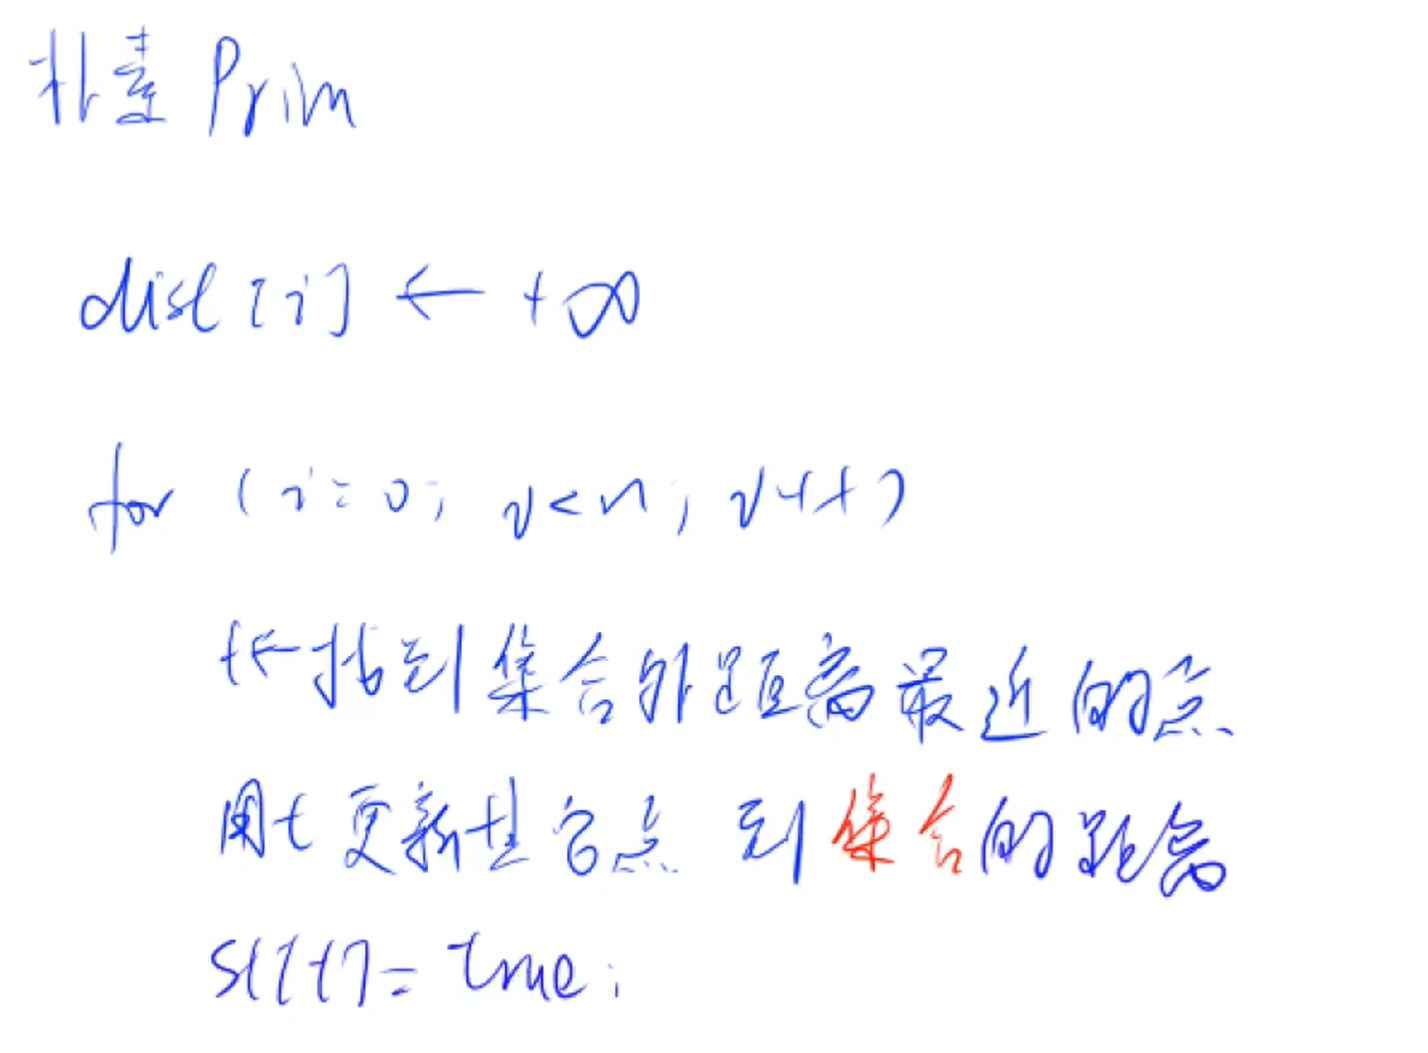 朴素 Prim
dist[i] ← +∞
for (i=0; i<n; i++)
t←找到集合外距离最近的点
用t更新其它点 到集合的距离
st[t]=true;